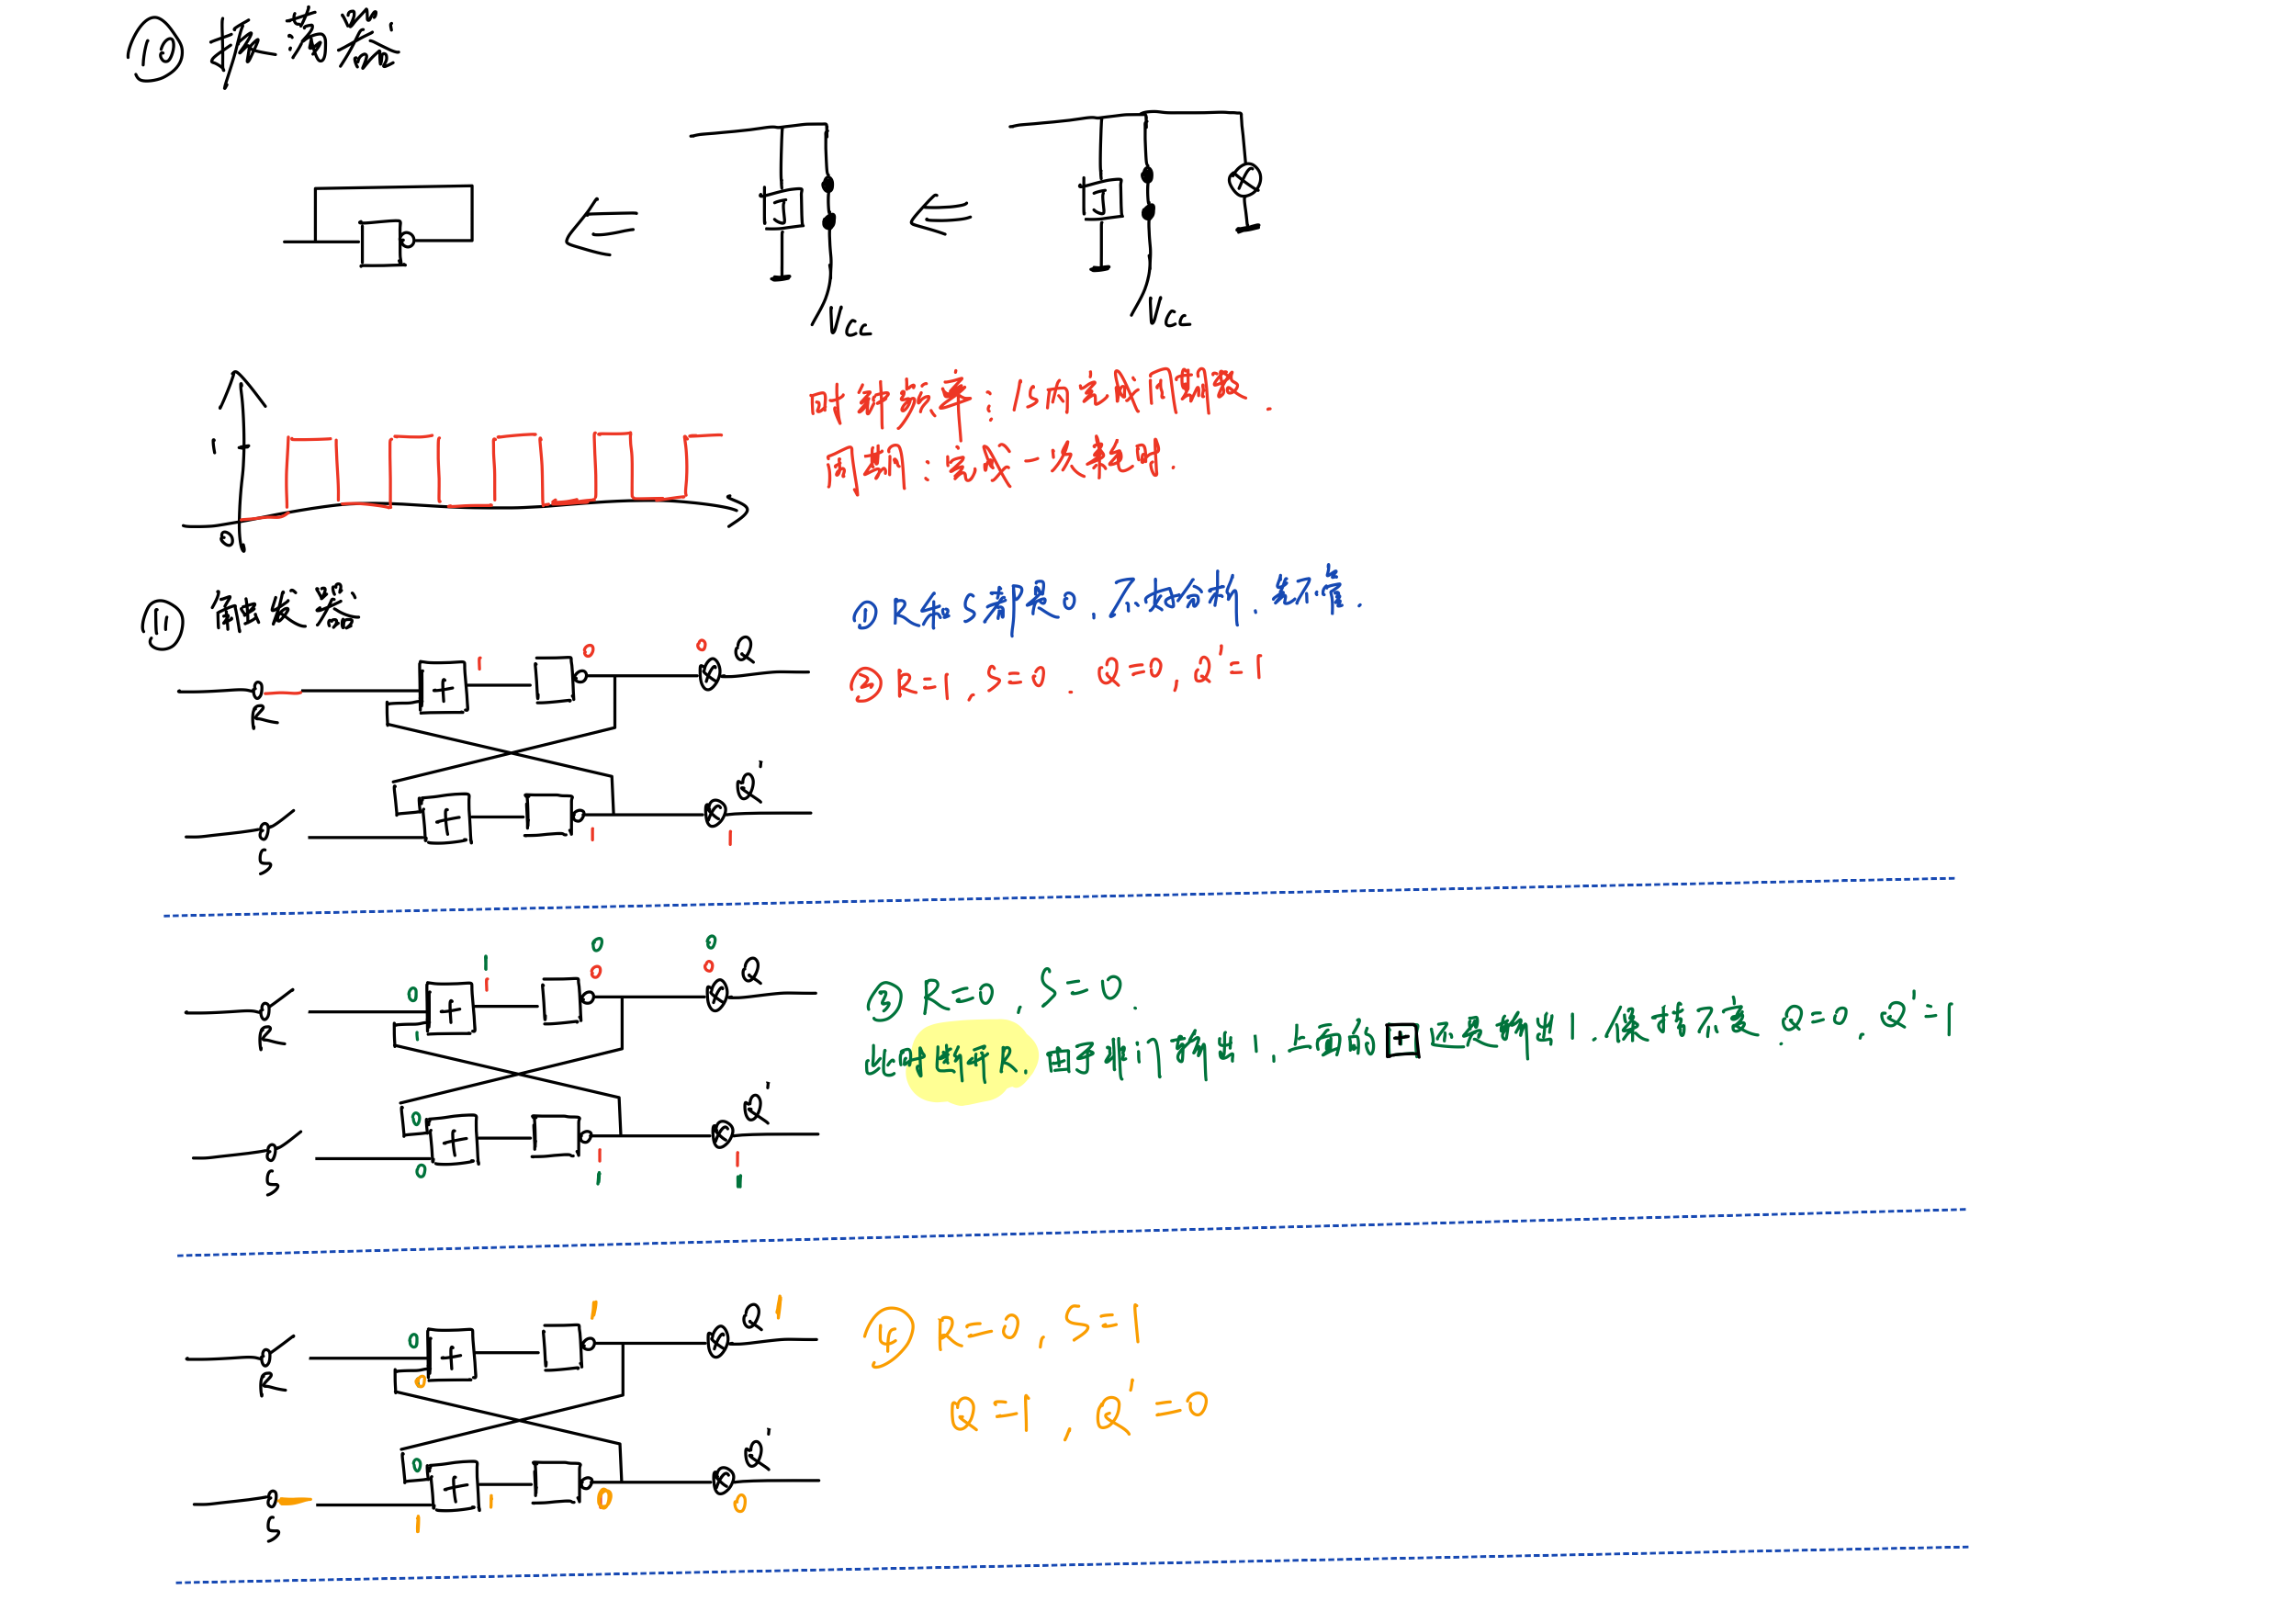 ⑩ 振荡器
J
J
Vcc
Vcc
时钟频率：1s内完成周期数.
周期：完成一次耗时.
1
0
⑪ 触发器
① R和S都是0，不好分析，先不管.
② R=1，S=0. Q=0，Q'=1
1 0 0 Q
+
R
Q'
+
1 1
S
0 0
1 0 0 Q
0 1
+
R 1
③ R=0，S=0.
此时断开R，由于非门输出1，上面的 + 还是输出1，保持不变. Q=0，Q'=1
Q'
0 +
0 1 1
S 1 1
1 Q 1
0 +
R 0
④ R=0，S=1
Q=1，Q'=0
Q'
0 +
1 0 0
S 1